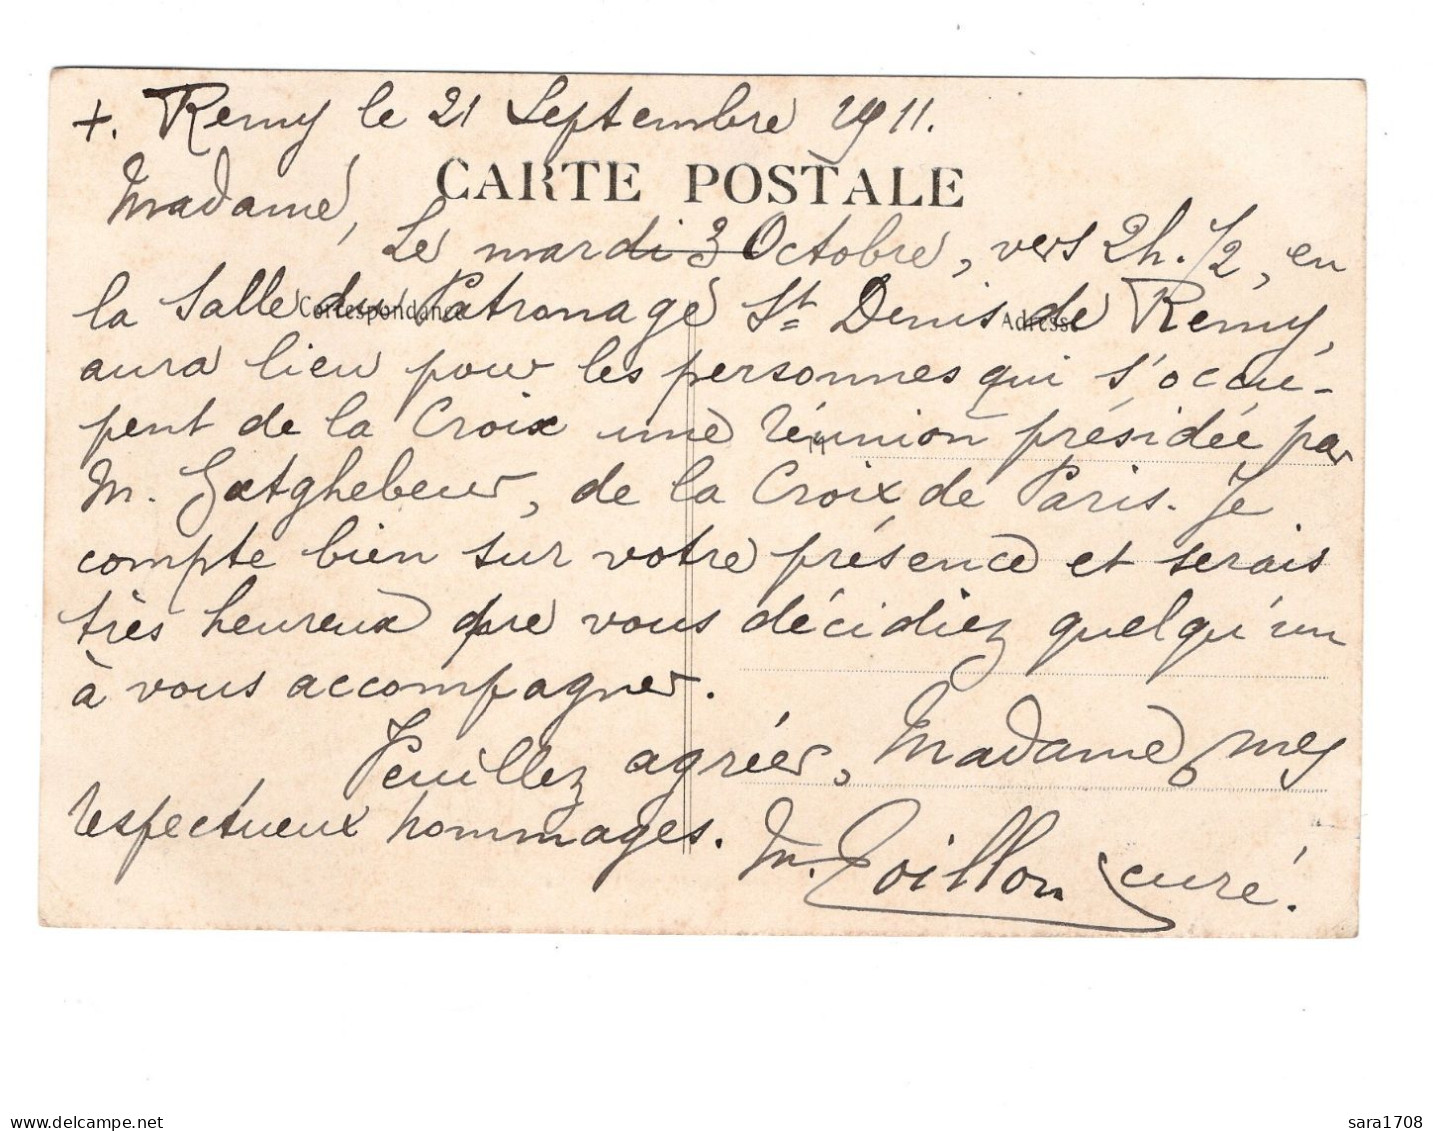 +. Remy le 21 Septembre 1911.
CARTE POSTALE
Madame,
Le mardi 3 Octobre, vers 2h. 1/2, en
la Salle du Patronage St Denis de Remy,
Correspondance
Adresse
aura lieu pour les personnes qui s'occu-
pent de la Croix une réunion présidée par
M. Gatghebeur, de la Croix de Paris. Je
compte bien sur votre présence et serais
très heureux que vous décidiez quelqu'un
à vous accompagner.
Veuillez agréer, Madame, mes
respectueux hommages.
M. Toillon curé.
delcampe.net
sara1708